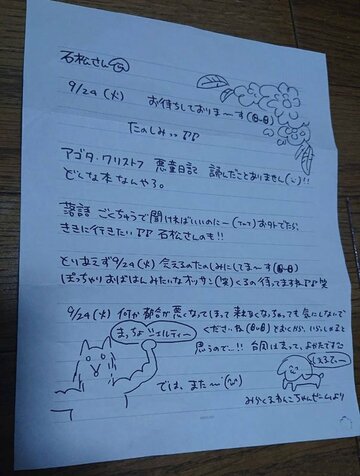 石松さん
9/24(火) お待ちしておりま〜す(θ-θ)
たのしみっ♪♪
アゴタ・クリストフ 悪童日記 読んだことありません(;_;)!!
どんな本なんやろ。
落語 ごくちゅうで聞ければいいのに〜(T^T) お外でたら、
ききに行きたい♪♪ 石松さんのも!!
とりあえず9/24(火)会えるのたのしみにしてま〜す(θ-θ)
ぽっちゃりおばはんみたいなオッサン(笑)くるの待ってますね♪♪笑
9/24(火)何か都合が悪くなってしまって来れなくなっちゃっても気にしないで
くださいね(θ-θ)とおくから、いらしゃると
思うので…!! 台風はまって、よかったです
まっちょシェルティー
では、また〜
みかくにんわんこちゃんぜーんより